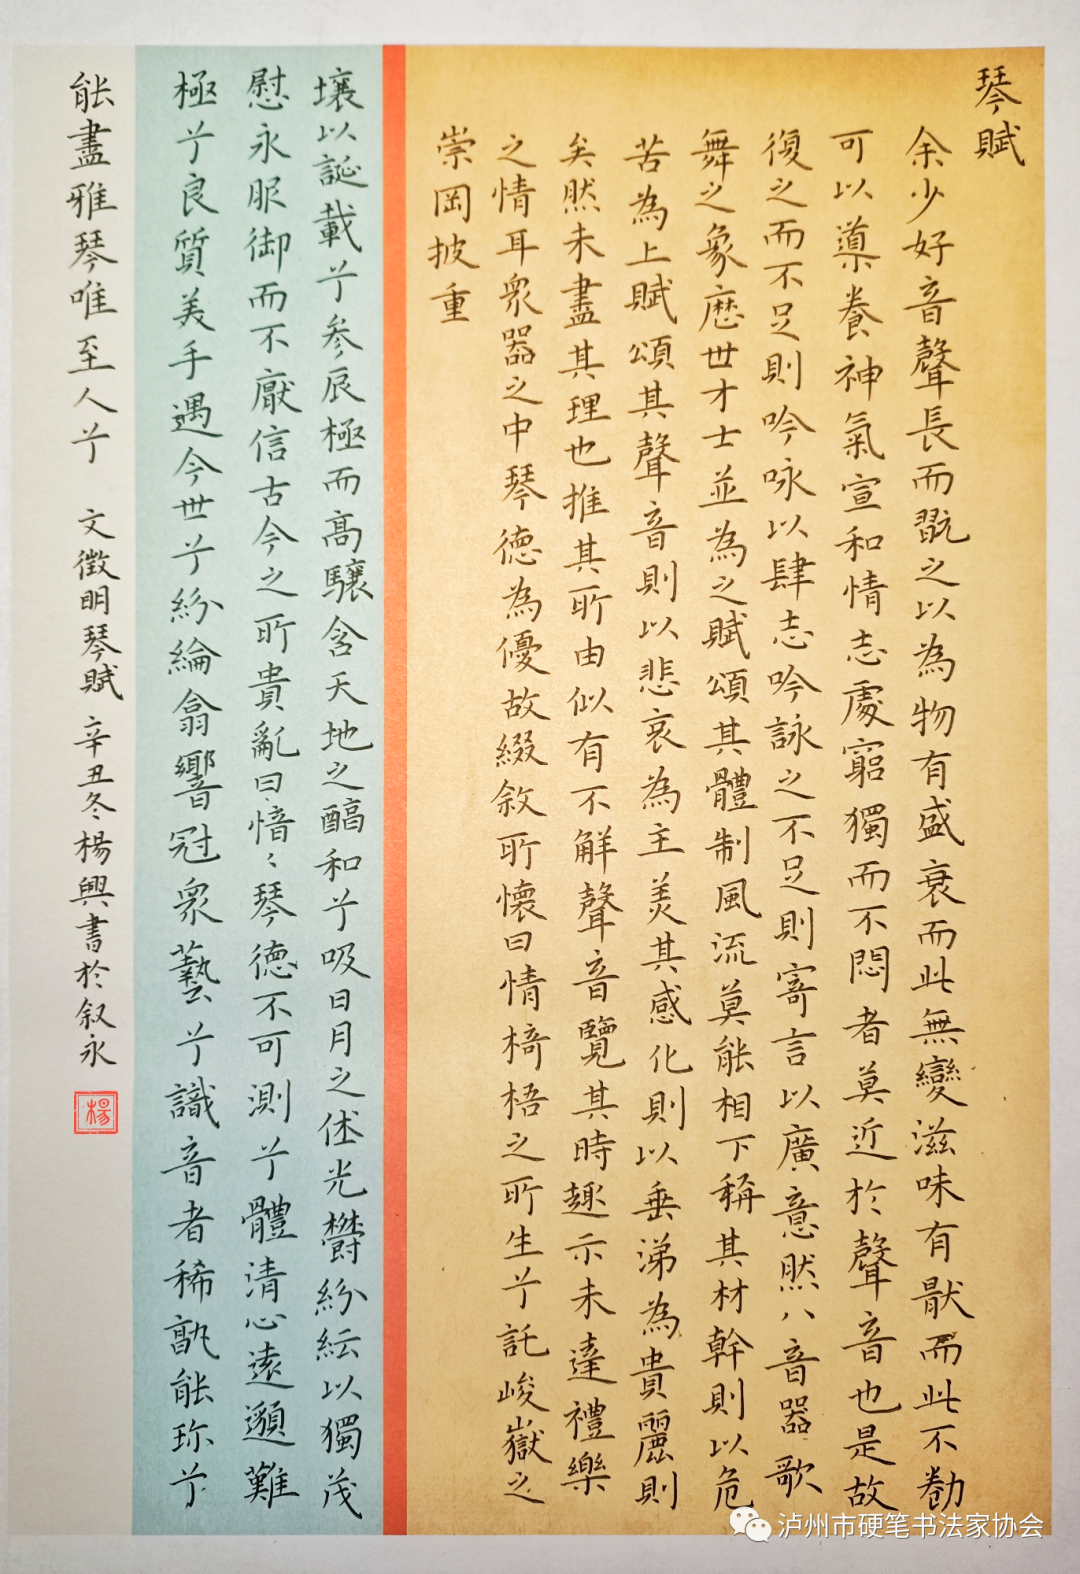 琴賦
余少好音聲長而翫之以為物有盛衰而此無變滋味有猒而此不勌
可以導養神氣宣和情志處窮獨而不悶者莫近於聲音也是故
復之而不足則吟咏以肆志吟詠之不足則寄言以廣意然八音器歌
舞之象歷世才士並為之賦頌其體制風流莫能相下稱其材幹則以危
苦為上賦頌其聲音則以悲哀為主美其感化則以垂涕為貴麗則
矣然未盡其理也推其所由似有不解聲音覽其時趣亦未達禮樂
之情耳衆器之中琴德為優故綴敘所懷曰情椅梧之所生兮託峻嶽之
崇岡披重
壤以誕載兮參辰極而高驤含天地之醇和兮吸日月之休光鬱紛紜以獨茂
慰永服御而不厭信古今之所貴亂曰愔〻琴德不可測兮體清心遠邈難
極兮良質美手遇今世兮紛綸翕響冠衆藝兮識音者稀孰能珎兮
能盡雅琴唯至人兮 文徵明琴賦 辛丑冬楊興書於叙永
楊
泸州市硬笔书法家协会